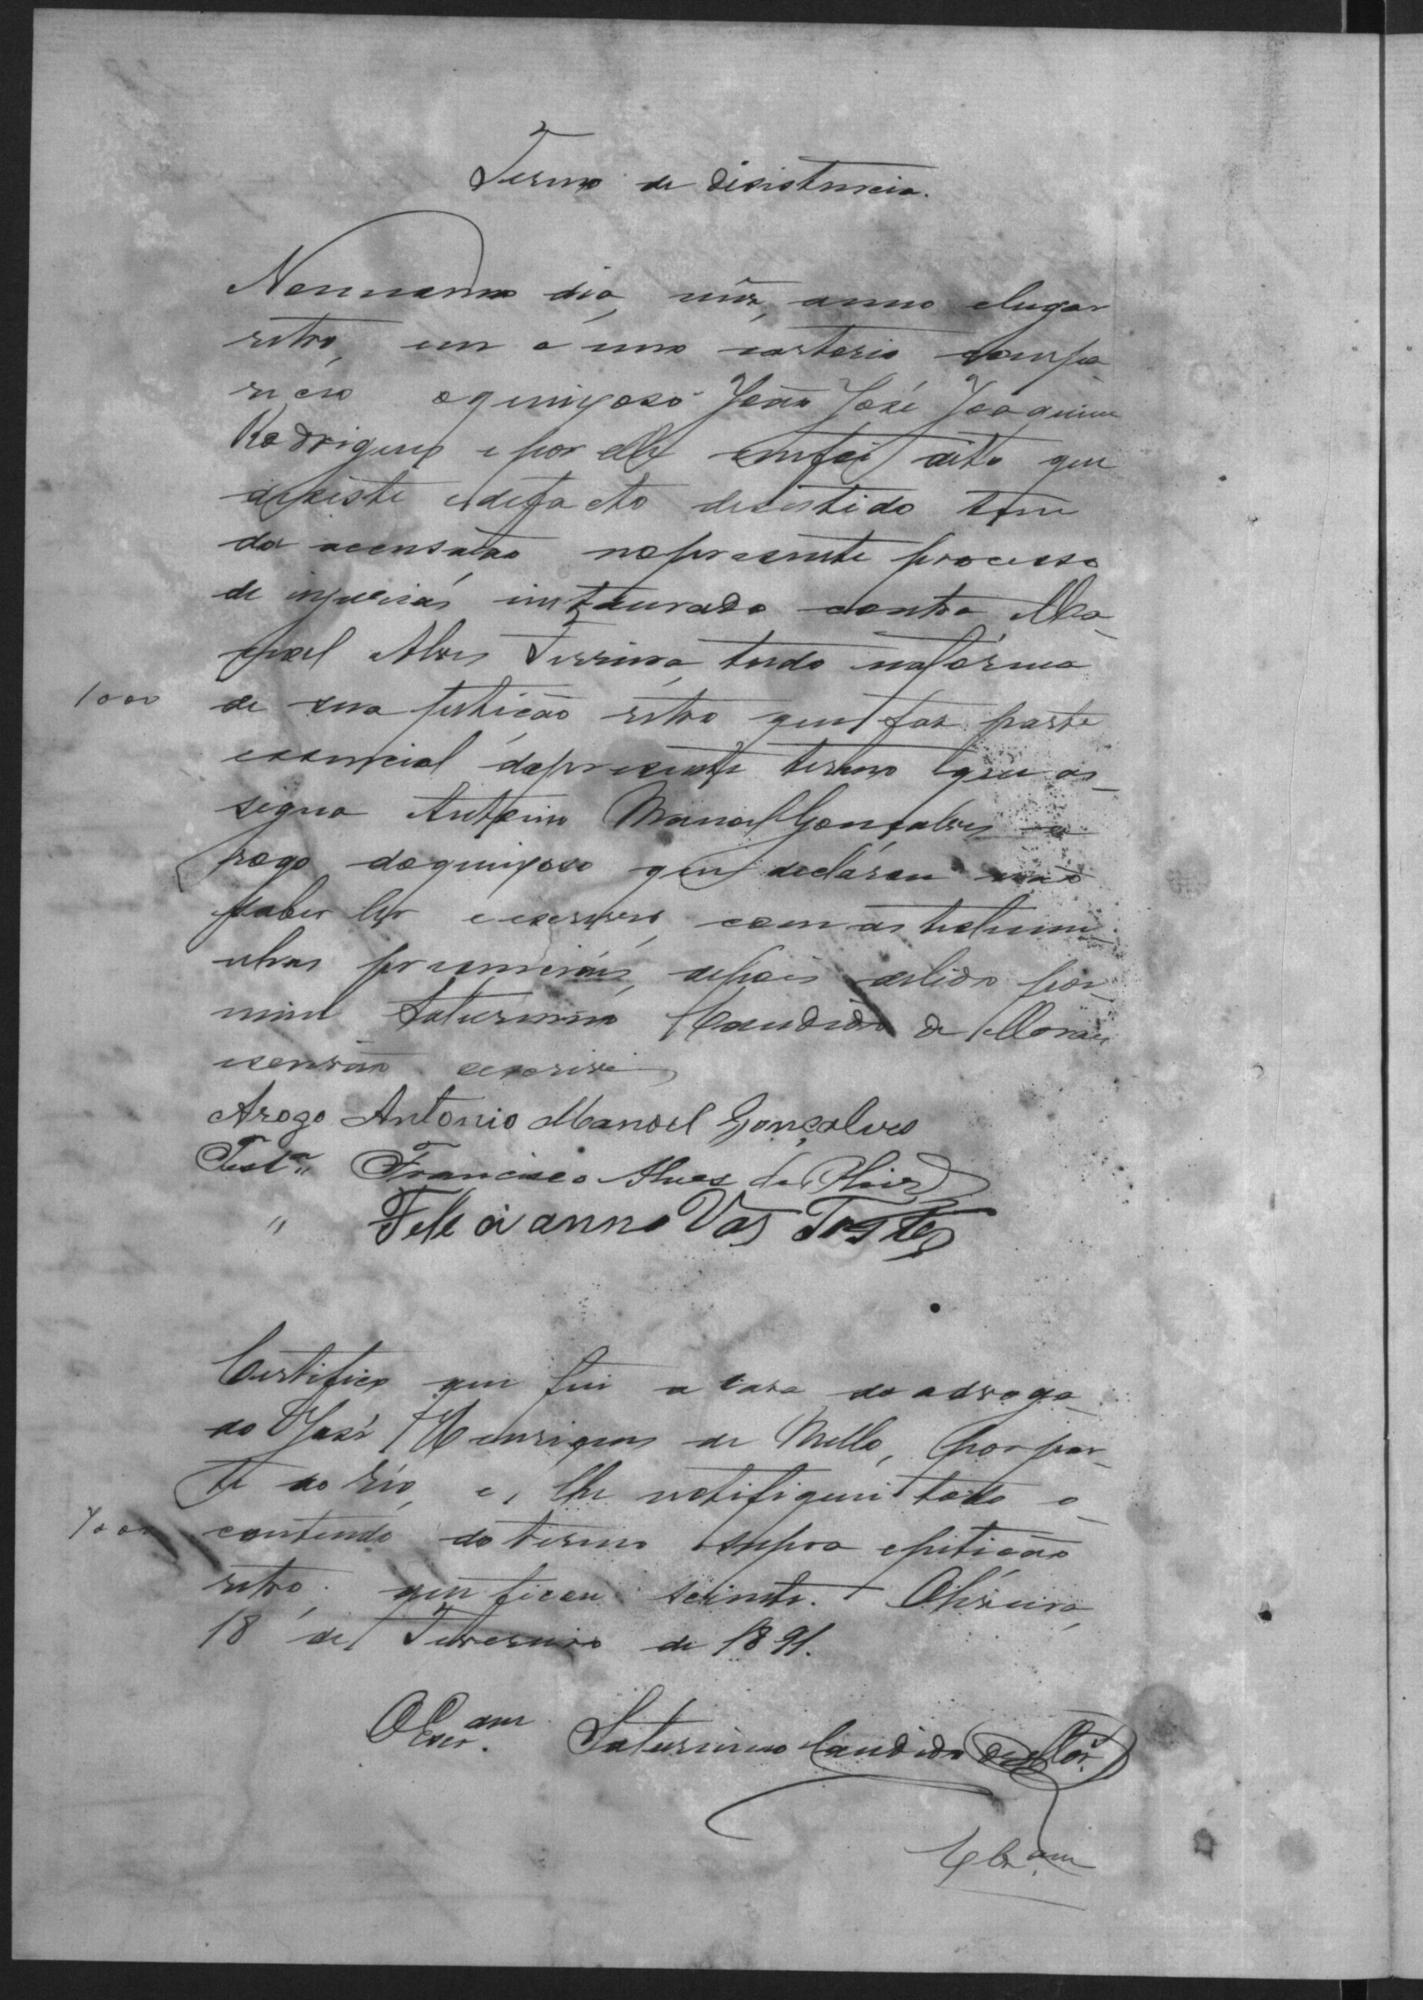 Termo de disistencia.
Nomesmo dia, mêz, anno elugar
retro, em o meo cartorio compa
receo oqueixoso João José Joaquim
Rodrigues e por elle emfoi dito que
desiste edefacto desistido tem
da accusação nopresente processo
de injurias instaurado contra Ma-
noel Alves Ferreira, tudo naforma
1000
de sua petição retro que faz parte
essencial dopresente termo que as-
signa Antonio Manoel Gonçalves a
rogo doqueixoso que declarou não
saber ler e escrever, com as testemu-
nhas presenciaes, depois delido por
mim Saturnino Candido de Moraes
escrivão escrevi
Arogo Antonio Manoel Gonçalves
Testas Francisco Alves de
" Feliciano Vas Tostes
Certifico que fui a casa do advoga-
do José Henriques de Mello, por par-
te do réo, e, lhe notifiquei todo o
1000
contendo do termo supra epetição
retro; que ficou sciente. Oliveira,
18 de Fevereiro de 1891.
O Escram. Saturnino Candido de Mor.